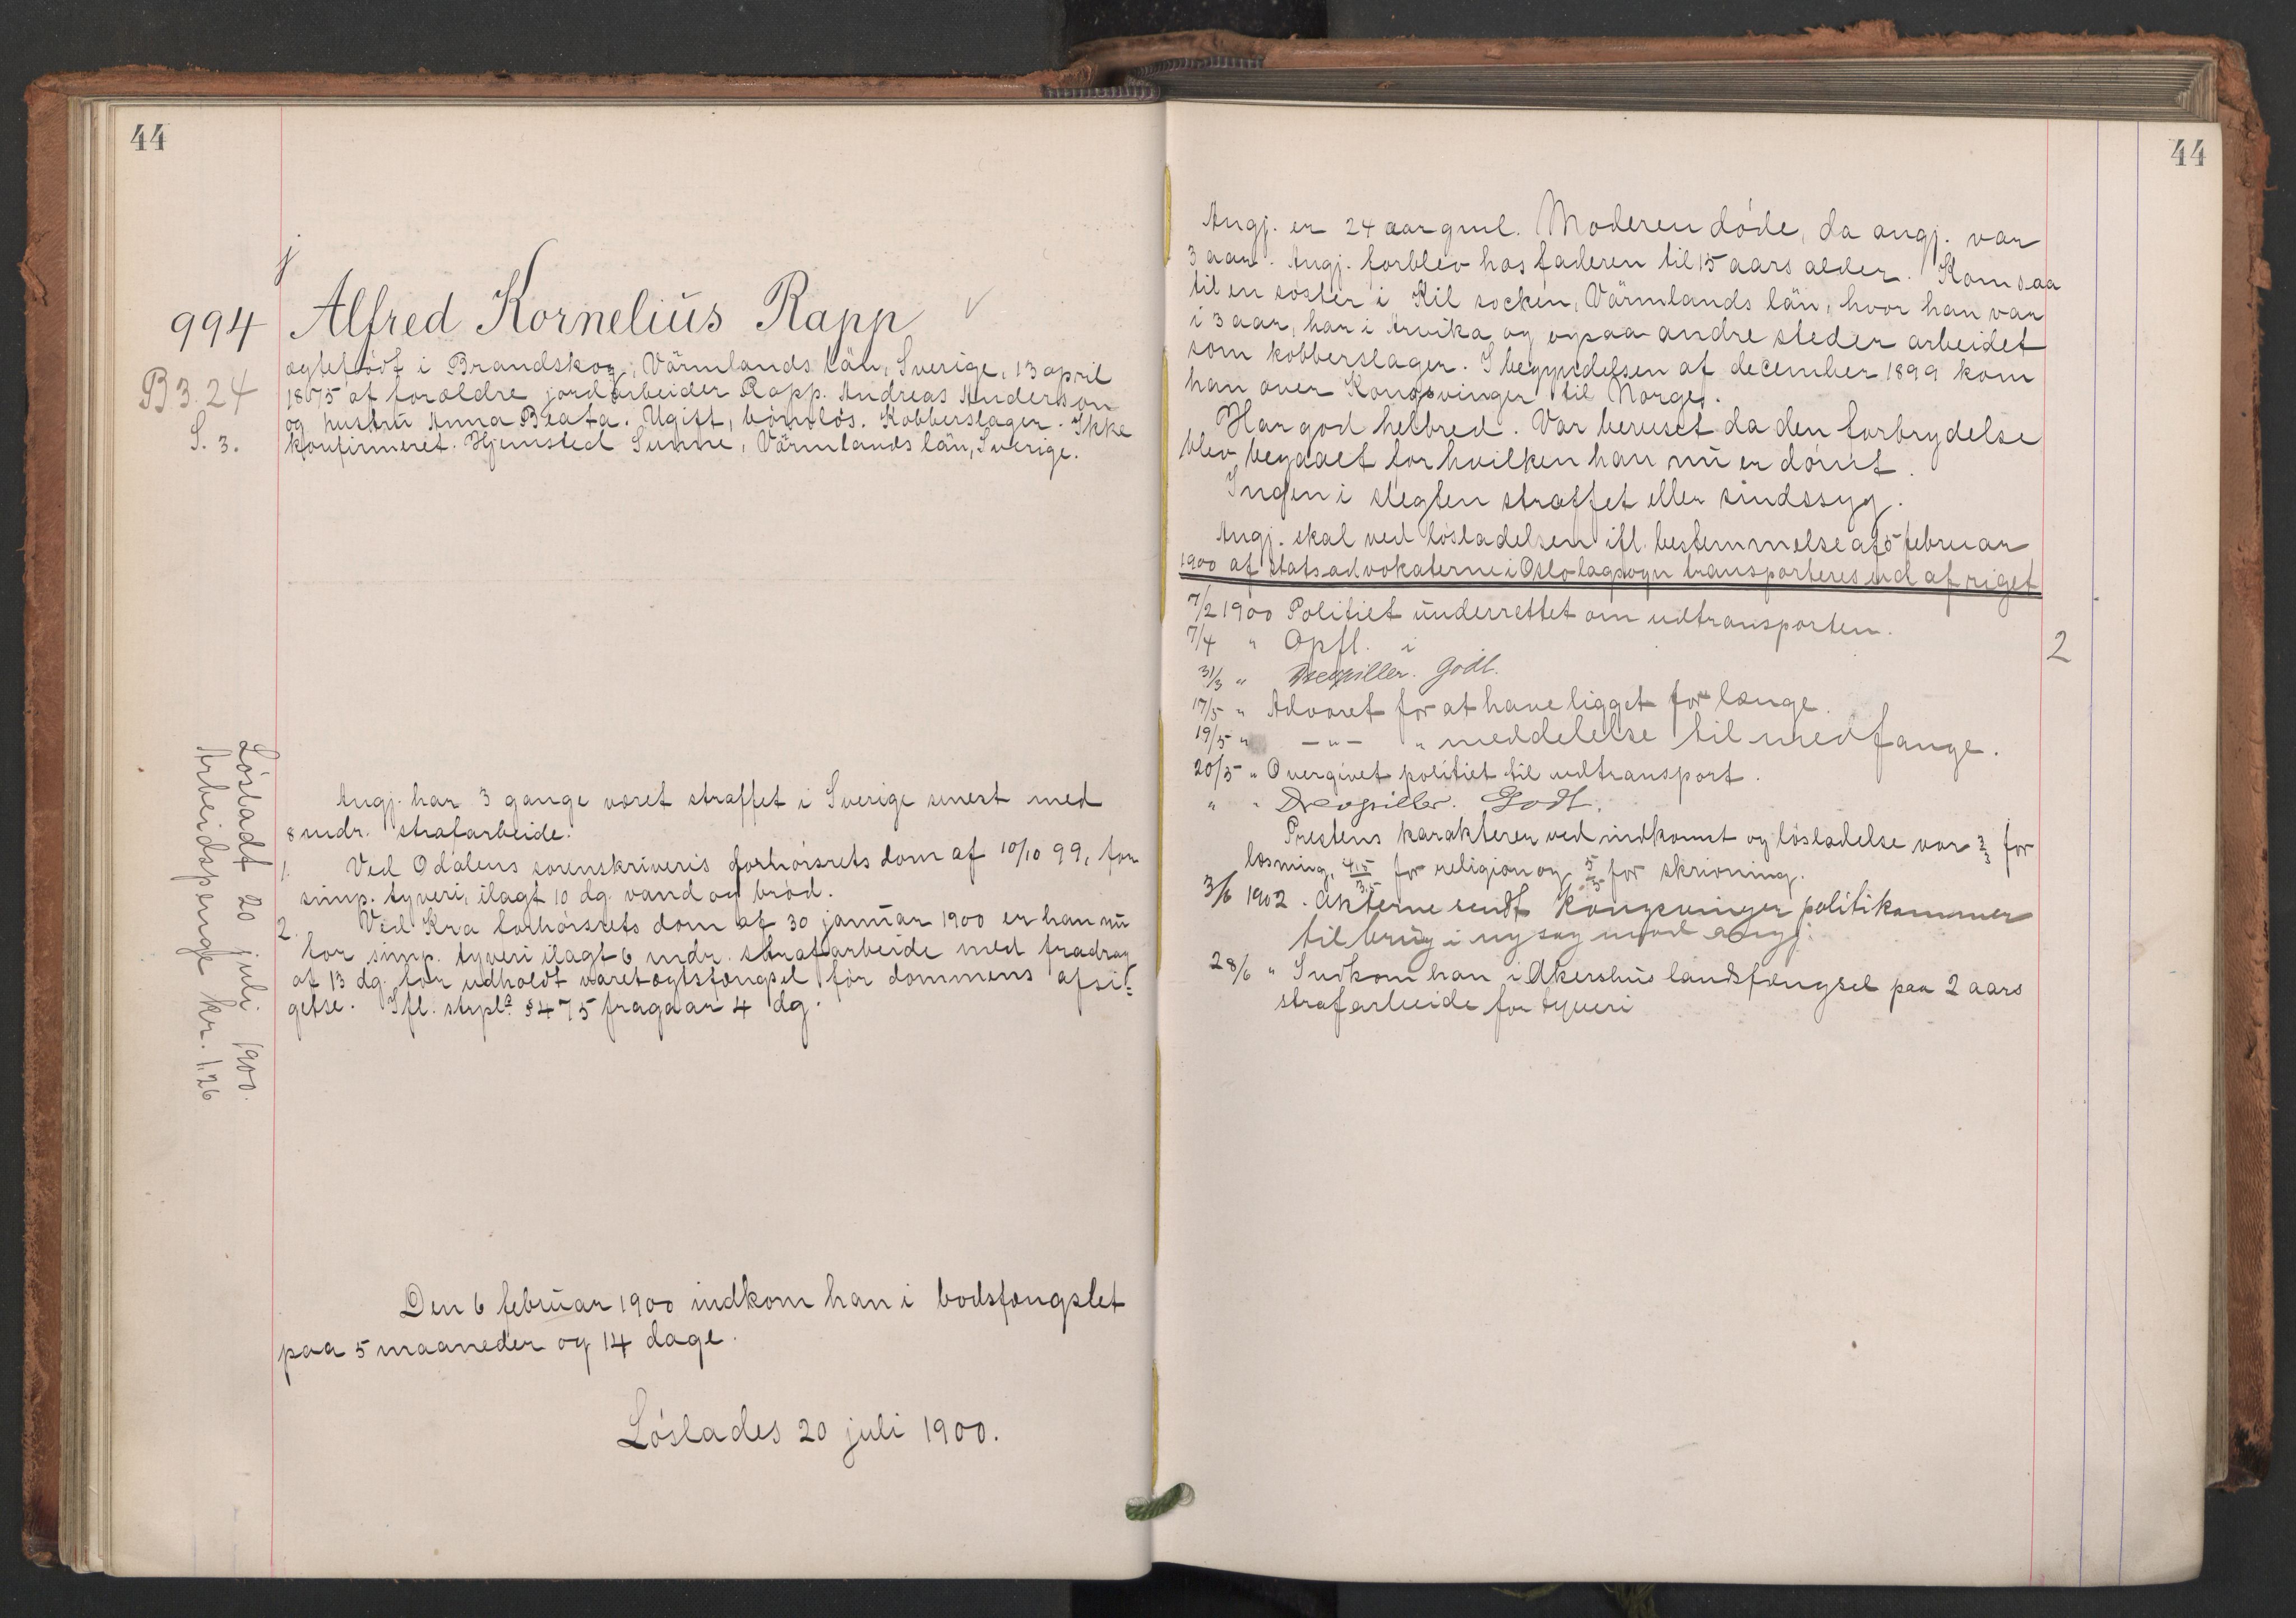 44
994 Alfred Kornelius Rapp
B 3. 24
S. 3.
ægtefødt i Brandskog, Värmlands län, Sverige, 13 april
1875 af forældre jordarbeider Rapp. Andreas Anderson
og hustru Anna Beata. Ugift, børnløs. Kobberslager. Ikke
konfirmeret. Hjemsted Sunne, Värmlands län, Sverige.
Angj. har 3 gange været straffet i Sverige senest med
8 mdr. strafarbeide.
1. Ved Odalens sorenskriveris forhørsrets dom af 10/10 99, for
simp. tyveri, ilagt 10 dg. vand og brød.
2. Ved Kra forhørsrets dom af 30 januar 1900 er han nu
for simp. tyveri ilagt 6 mdr. strafarbeide med fradrag
af 13 dg. for udholdt varetægtsfængsel før dommens afsi-
gelse. Ifl. strpl. § 475 fragaar 4 dg.
Løsladt 20 juli 1900.
Arbeidspenge kr. 1.26
Den 6 februar 1900 indkom han i bodsfængslet
paa 5 maaneder og 14 dage.
Løslades 20 juli 1900.
44
Angj. er 24 aar gml. Moderen døde, da angj. var
3 aar. Angj. forblev hos faderen til 15 aars alder. Kom saa
til en søster i Kil socken, Värmlands län, hvor han var
i 3 aar, har i Arvika og ogsaa andre steder arbeidet
som kobberslager. I begyndelsen af december 1899 kom
han over Kongsvinger til Norge.
Har god helbred. Var beruset da den forbrydelse
blev begaaet for hvilken han nu er dømt.
Ingen i slegten straffet eller sindssyg.
Angj. skal ved løsladelsen ifl. bestemmelse af 5 februar
1900 af statsadvokaterne i Oslo lagsogn transporteres ud af riget
7/2 1900 Politiet underrettet om udtransporten.
7/4 " Opfl. i 2
31/3 " Drevpiller. Godt.
17/5 " Advaret for at have ligget for længe.
19/5 " -"- " meddelelse til medfange.
20/5 " Overgivet politiet til udtransport.
" " Drevpiller. Godt.
Prestens karakterer ved indkomst og løsladelse var 3/3 for
læsning, 4,5/3,5 for religion og 5/5 for skrivning.
3/6 1902. Akterne sendt Kongsvinger politikammer
til brug i ny sag mod angj.
28/6 " Indkom han i Akershus landsfængsel paa 2 aars
strafarbeide for tyveri